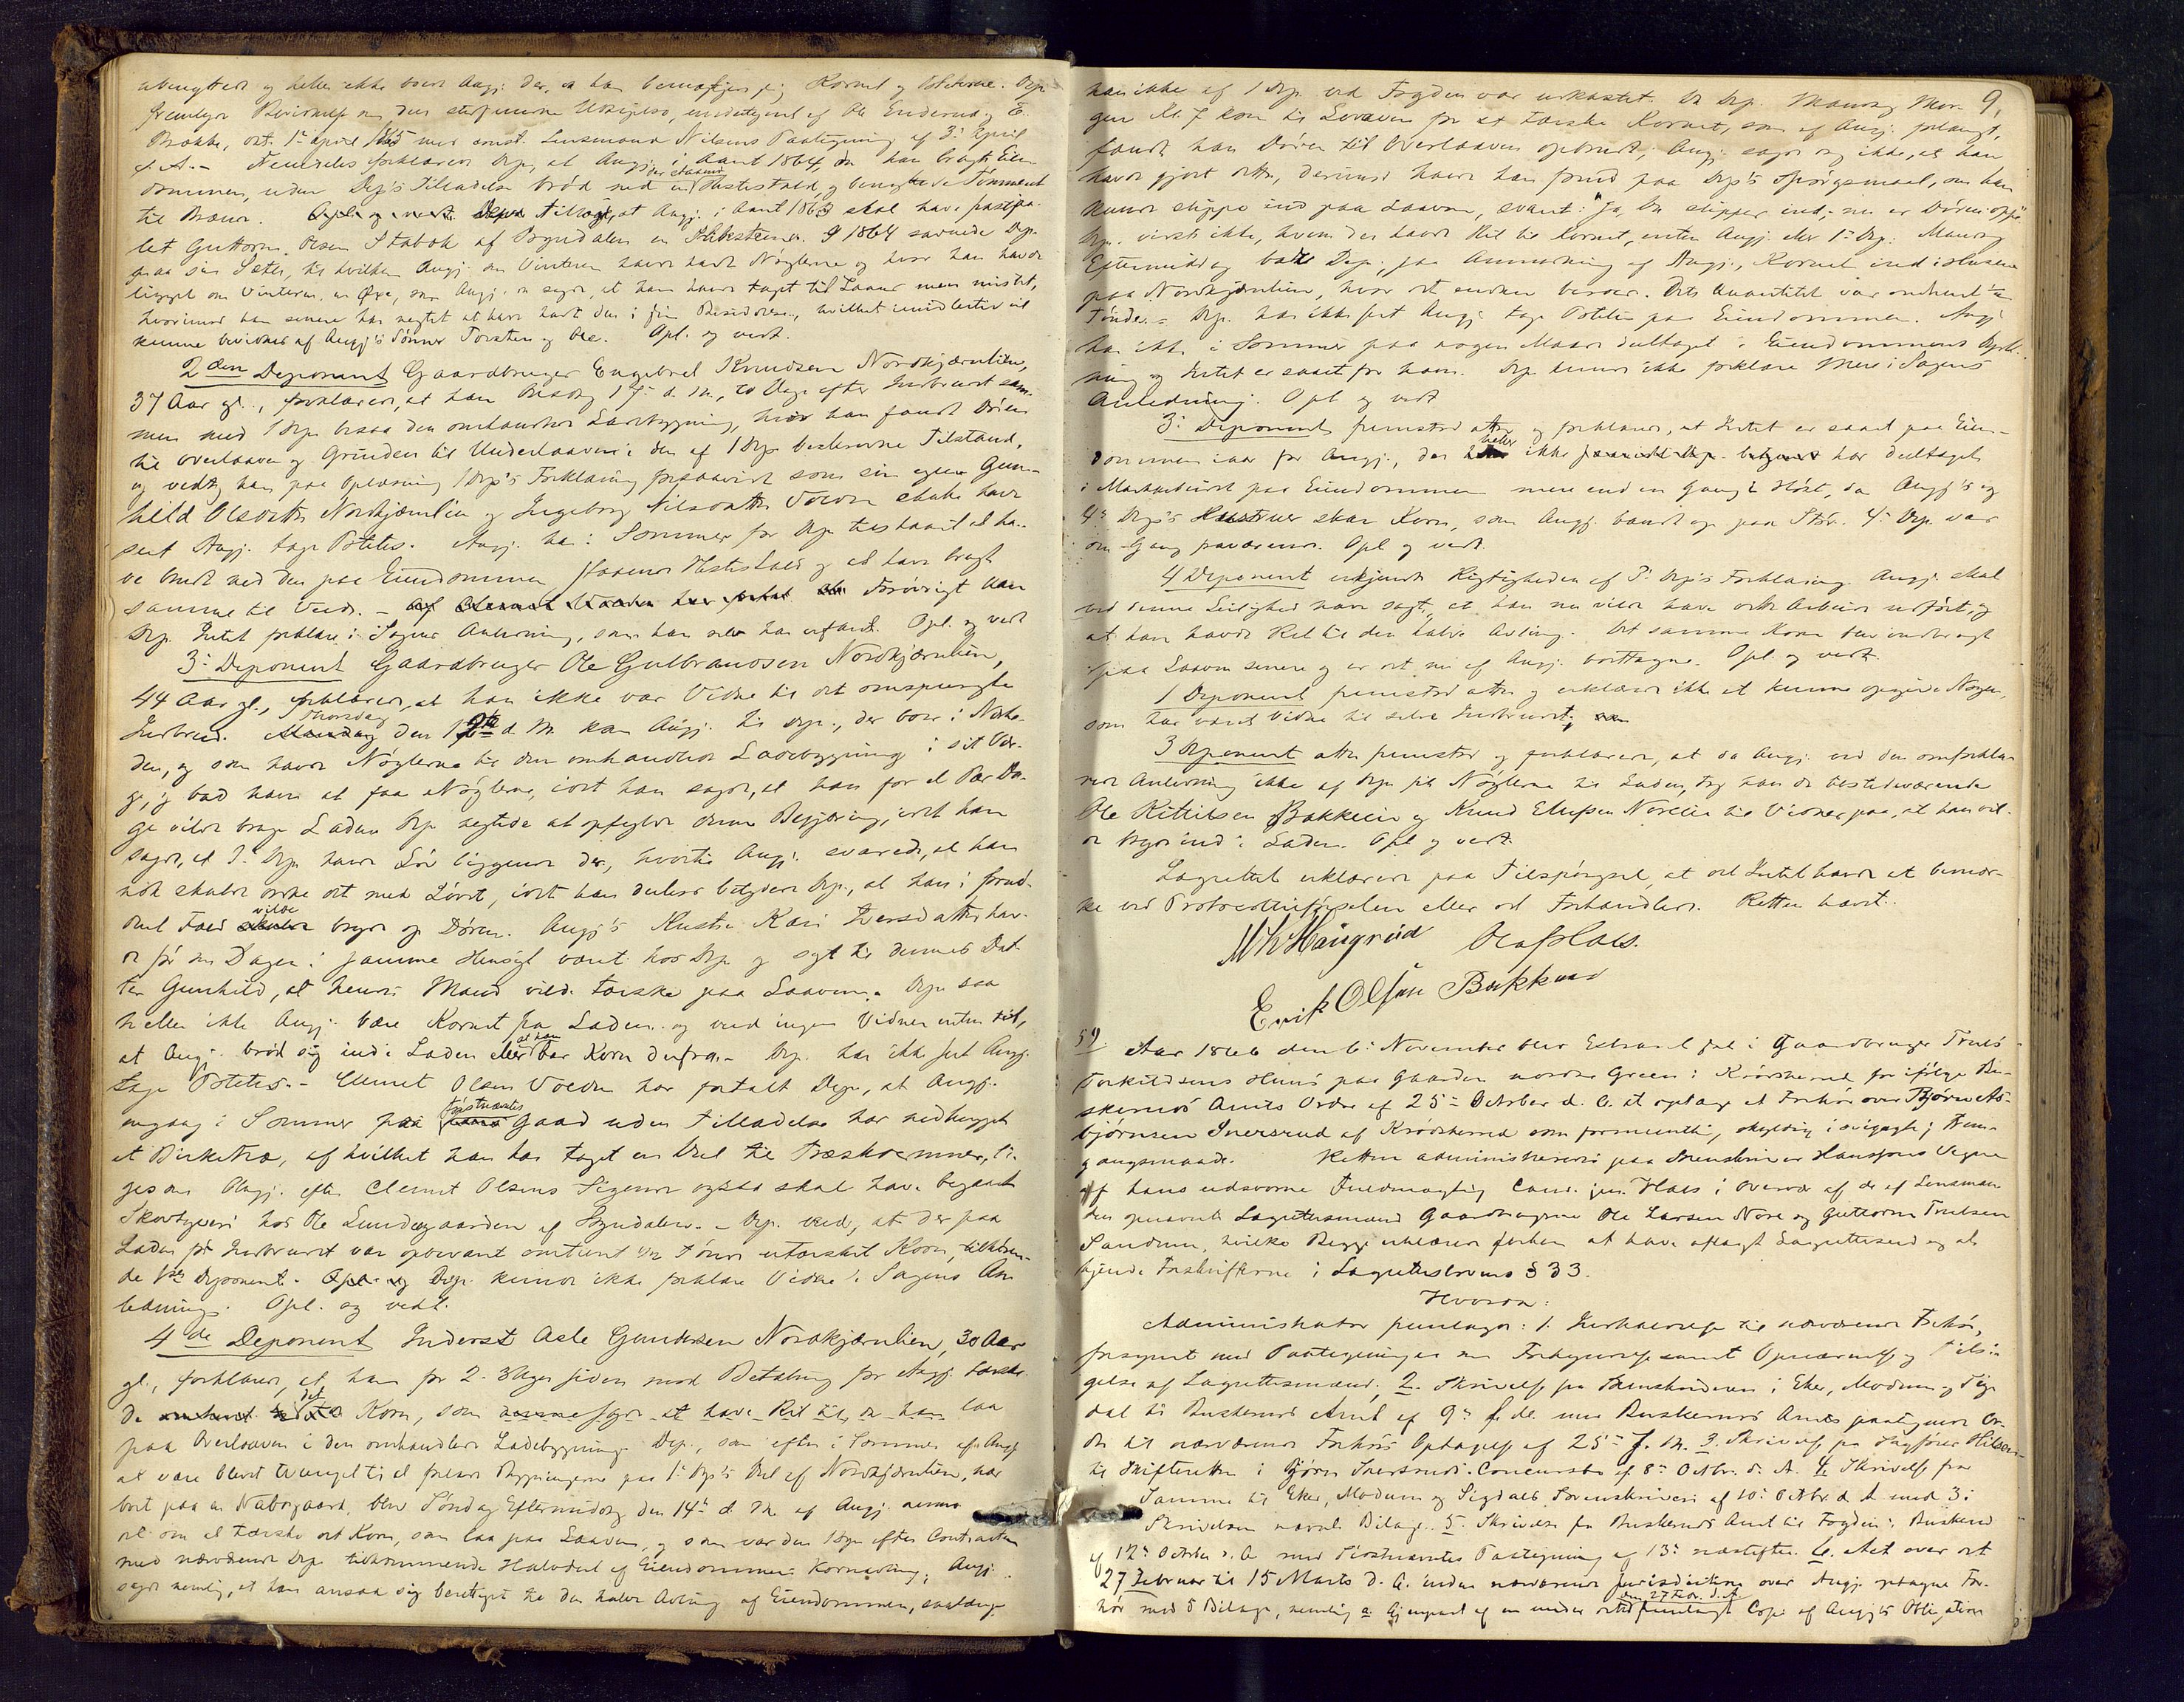 ubenyttet og heller ikke boer Angj. der, da han bemægtiger sig Kornet og Poteterne. Dep.
fremlagde Beviis om den stedfundne Udviselse, undertegnet af Ole Enderud og E.
Brække, dat. 1ste April 1865 med const. Lensmand Nilsens Paategning af 3die April
s. A. – Fremdeles forklarer Dep., at Angj. i Aaret 1864, da han brugte Eien-
dommen, uden Dep's Tilladelse brød ned en der staaende Hestestald, og benyttede Tømmeret
til Brænde. at Angj. i Aaret 1863 skal have frastjaa-
let Guttorm Olsen Stabak af Bygndalen en Slibesteen. I 1864 savnede Dep.
paa sin Sæter, til hvilken Angj. om Vinteren havde havt Nøglerne og hvor han havde
ligget om Vinteren, en Øxe, som Angj. da sagde, at han havde taget til Laans men mistet,
hvorimod han senere har negtet at have havt den i sin Besiddelse, hvilket imidlertid vil
kunne bevidnes af Angj's Sønner Torsten og Ole. Opl. og vedt.
2den Deponent Gaardbruger Engebret Knudsen Nordkjærnlien,
37 Aar gl., forklarer, at han Onsdag 17de d. M., to Dage efter Indbrudet sam-
men med 1 Dep. besaa den omhandlede Ladebygning, hvor han fandt Døren
til Overlaaven og Grinden til Underlaaven i den af 1 Dep. beskrevne Tilstand,
og vedtog han paa Oplæsning 1 Dep's Forklaring forsaavidt som sin egen. Gun-
hild Olsdatter Nordkjærnlien og Ingeborg Nilsdatter Volden skulle have
seet Angj. tage Potetes. Angj. har i Sommer for Dep. tilstaaet at ha-
ve brudt ned den paa Eiendommen staaende Hestestald og at have brugt
samme til Veed. – Forøvrigt kan
Dep. Intet forklare i Sagens Anledning, som han selv har erfaret. Opl. og vedt.
3die Deponent Gaardbruger Ole Gulbrandsen Nordkjærnlien,
44 Aar gl., forklarer, at han ikke var Vidne til det omspurgte
Indbrud. Thorsdag den d. M. kom Angj. til Dep., der boer i Nærhe-
den, og som havde Nøglerne til den omhandlede Ladebygning i sit Vær-
ge, og bad ham at faa Nøglerne, idet han sagde, at han for et Par Da-
ge vilde bruge Laden. Dep. negtede at opfylde denne Begjæring, idet han
sagde, at 1ste Dep. havde Løv liggende der, hvortil Angj. svarede, at han
nok skulde ordne det med Løvet, idet han derhos betydede Dep., at han i fornø-
dent Fald vilde bryde op Døren. Angj's Hustru Kari Iversdatter hav-
de før om Dagen i samme Hensigt været hos Dep. og sagt til dennes Dat-
ter Gunhild, at hendes Mand vilde tærske paa Laaven. Dep. saa
heller ikke Angj. bære Kornet fra Laden og veed ingen Vidner enten til,
at Angj. brød sig ind i Laden eller at han bar Korn derfra. – Dep. har ikke seet Angj.
tage Potetes. – Clemet Olsen Volden har fortalt Dep., at Angj.
engang i Sommer paa Førstnævntes Gaard uden Tilladelse har nedhugget
et Birketræ, af hvilket han har taget en Deel til Træskoemner, li-
gesom Angj. efter Clemet Olsens Sigende ogsaa skal have begaaet
Skovtyveri hos Ole Lundegaarden af Bygndalen. – Dep. veed, at der paa
Laden før Indbrudet var opbevaret omtrent 1/2 Tønde utærsket Korn, tilhøren-
de 1ste Deponent. Dep. kunde ikke forklare Videre i Sagens An-
ledning. Opl. og vedt.
4de Deponent Inderst Asle Gundersen Nordkjærnlien, 30 Aar
gl., forklarer, at han for 2-3 Uger siden mod Betaling for Angj. tærske-
de det Korn, som laa
paa Overlaaven i den omhandlede Ladebygning. Dep., som efter i Sommer af Angj.
at være blevet tvunget til at forlade Bygningerne paa 1ste Dep's Deel af Nordkjærnlien, har
boet paa en Nabogaard, blev Søndag Eftermiddag den 14de d. M. af Angj. anmo-
det om at tærske det Korn, som laa paa Laaven, og som var den 1 Dep. efter Contracten
med nærværende Dep. tilkommende Halvdeel af Eiendommens Kornavling; Angj.
sagde nemlig, at han ansaa sig berettiget til den halve Avling af Eiendommen, saalænge
9.
han ikke af 1 Dep. ved Fogden var udkastet. Da Dep. Mandag Mor-
gen Kl. 7 kom til Laaven for at tærske Kornet, som af Angj. forlangt,
fandt han Døren til Overlaaven opbrudt; Angj. sagde dog ikke, at han
havde gjort dette, derimod havde han forud paa Dep's Spørgsmaal, om han
kunde slippe ind paa Laaven, svaret: "Ja, Du slipper ind, nu er Døren oppe"
Dep. vidste ikke, hvem der havde Ret til Kornet, enten Angj. eller 1ste Dep. Mandag
Eftermiddag bar Dep., paa Anmodning af Angj., Kornet ind i Husene
paa Nordkjærnlien, hvor det endnu beroer. Dets Quantitet var omtrent 1/2
Tønde. – Dep. har ikke seet Angj. tage Poteter paa Eiendommen. Angj.
har ikke i Sommer paa nogen Maade deeltaget i Eiendommens Dyrk-
ning og Intet er saaet for ham. Dep. kunde ikke forklare Mere i Sagens
Anledning. Opl. og vedt.
3die Deponent fremstod atter og forklarer, at Intet er saaet paa Eien-
dommen iaar for Angj., der heller ikke har deeltaget
i Markarbeidet paa Eiendommen mere end en Gang i Høst, da Angj's og
4de Dep's Hustruer skar Korn, som Angj. bandt op paa Stør. 4de Dep. var
den Gang fraværende. Opl. og vedt.
4 Deponent erkjendte Rigtigheden af 3die Dep's Forklaring. Angj. skal
ved denne Leilighed have sagt, at han nu vilde have dette Arbeide udført, og
at han havde Ret til den halve Avling. Det samme Korn blev indbragt
paa Laaven senere og er det nu af Angj. borttagne. Opl. og vedt.
1 Deponent fremstod atter og erklærede ikke at kunne opgive Nogen,
som har været Vidne til selve Indbrudet.
3 Deponent atter fremstod og forklarer, at da Angj. ved den omforkla-
rede Anledning ikke af Dep. fik Nøglerne til Laden, tog han de tilstedeværende
Ole Kittilsen Bakkeie og Knud Elufsen Norelie til Vidner paa, at han vil-
de bryde ind i Laden. Opl. og vedt.
Lagrettet erklærede paa Tilspørgsel, at det Intet havde at bemær-
ke ved Protocoltilførselen eller det Forhandlede. Retten hævet.
Erik Olsen Bakken
59
Aar 1866 den 6te November blev Extraret sat i Gaardbruger Truls
Torkildsens Huus paa Gaarden nordre Green i Krødsherred for ifølge Bu-
skeruds Amts Ordre af 25de October d. A. at optage et Forhør over Bjørn As-
bjørnsen Snersrud af Krødsherred som formeentlig skyldig i svigagtig Frem-
gangsmaade. Retten administreredes paa Sorenskriver Hansons Vegne
af hans edsvorne Fuldmægtig Cand. jur. Hals i Overvær af de af Lensman-
den opnævnte Lagrettesmænd Gaardbrugerne Ole Larsen Nore og Guttorm Trulsen
Sandum, hvilke Begge erklærede forhen at have aflagt Lagretteseed og at
kjende Forskrifterne i Lagrettelovens § 33.
Hvorda:
Administrator fremlagde: 1. Indkaldelse til nærværende Forhør,
forsynet med Paategninger om Forkyndelse samt Opnævnelse og Tilsi-
gelse af Lagrettesmænd. 2. Skrivelse fra Sorenskriveren i Eker, Modum og Sig-
dal til Buskeruds Amt af 9de f. M. med Buskeruds Amts paategnede Or-
dre til nærværende Forhørs Optagelse af 25de f. M. 3. Skrivelse fra Sagfører Hilsen
til Skifteretten i Bjørn Snersruds Concursbo af 8de Octbr. d. A. 4. Skrivelse fra
Samme til Eker, Modum og Sigdals Sorenskriveri af 10de Octbr. d. A. med 3 i
Skrivelsen nævnte Bilage. 5. Skrivelse fra Buskeruds Amt til Fogden i Buskerud
af 12te October d. A. med Sidstnævntes Paategning af 13de næstefter. 6. Act over det
27 Februar til 15 Marts d. A. inden nærværende Jurisdiction over Angj. optagne For-
hør med 5 Bilage, nemlig a. Gjenpart af en under den 27 Febr. d. A. fremlagt Copi af Angj's Obligation